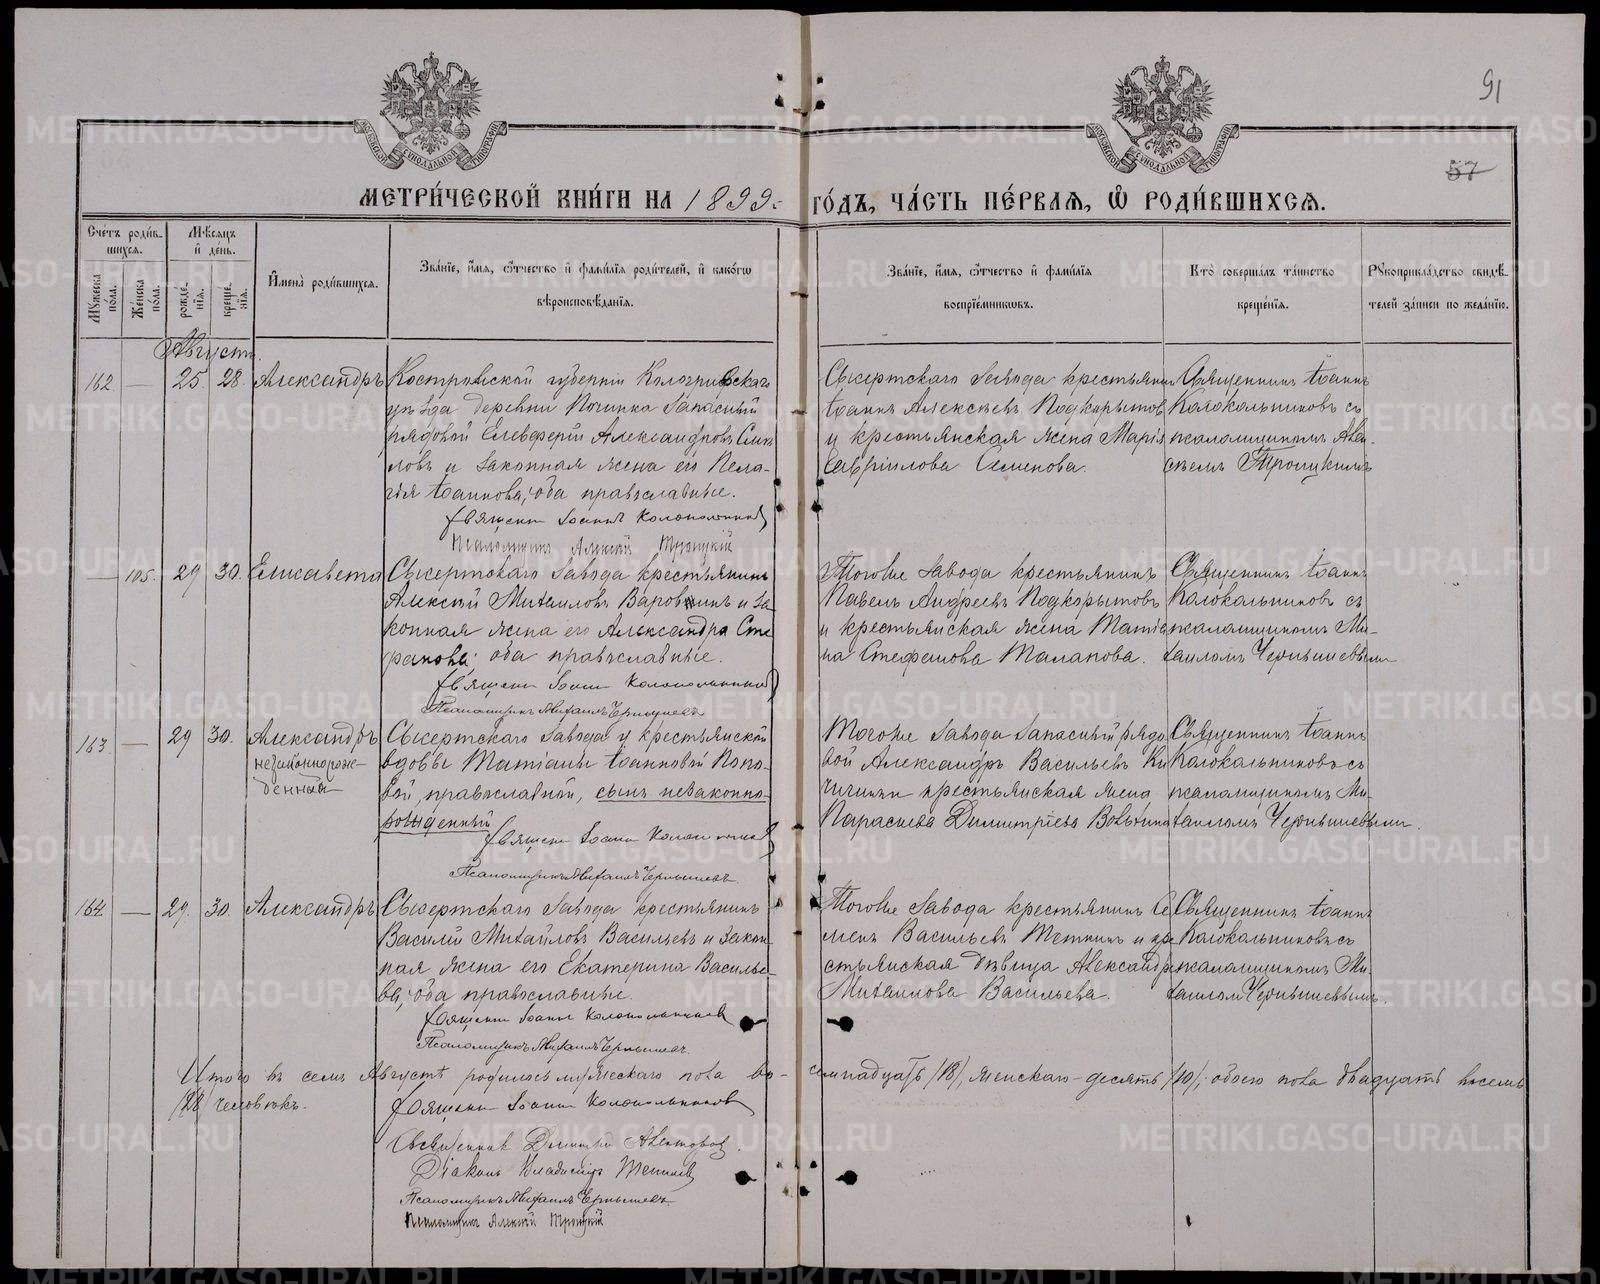 91
57
МОСКОВСКОЙ СѴНОДАЛЬНОЙ ТИПОГРАФІИ
МОСКОВСКОЙ СѴНОДАЛЬНОЙ ТИПОГРАФІИ
МЕТРИ́ЧЕСКОЙ КНИ́ГИ НА 1899 ГО́ДЪ, ЧА́СТЬ ПЕ́РВАЯ, Ѡ РОДИ́ВШИХСЯ.
Сче́тъ роди́в-
шихся.
Мꙋжеска по́ла.
Же́нска по́ла.
Мѣ́сяцъ и де́нь.
рожде́-
нїя.
креще́-
нїя.
Имена̀ роди́вшихся.
Зва́нїе, и́мя, ѻ҆́тчество и фами́лїя роди́телей, и како́гѡ
вѣроисповѣ́данїя.
Зва́нїе, и́мя, ѻ҆́тчество и фами́лїя
воспрїе́мниковъ.
Кто̀ соверша́лъ та́инство
креще́нїя.
Рꙋкоприкла́дство свидѣ́-
телей за́писи по жела́нїю.
Августъ.
162 — 25. 28. Александръ
Костромской губерніи Кологривскаго
уѣзда деревни Починка запасный
рядовой Елевферій Александровъ
и законная жена его Пела-
гія Іоаннова, оба православные.
Священ. Іоаннъ Колокольников
Псаломщикъ Алексій Троицкій
Сысертскаго завода крестьянин
Іоаннъ Алексѣевъ Подкорытов
и крестьянская жена Марія
Гавріилова Семенова.
Священникъ Іоаннъ
Колокольниковъ съ
псаломщикомъ Алек-
сѣемъ Троицкимъ
— 105. 29 30. Елисавета
Сысертскаго завода крестьянинъ
Алексій Михаиловъ и за-
конная жена его Александра Сте-
фанова, оба православные.
Священ. Іоанн Колокольников
Псаломщикъ Михаилъ Чернышевъ
Тогоже завода крестьянинъ
Павелъ Андреевъ Подкорытовъ
и крестьянская жена Татіа-
на Стефанова Таланова.
Священникъ Іоаннъ
Колокольниковъ съ
псаломщикомъ Ми-
хаиломъ Чернышевымъ
163 — 29 30. Александръ
незаконнорож-
денный
Сысертскаго завода у крестьянской
вдовы Татіаны Іоанновой Попо-
вой, православной, сынъ незаконно-
рожденный
Священ. Іоанн Колокольников
Псаломщикъ Михаилъ Чернышевъ.
Тогоже завода запасный рядо-
вой Александръ Васильевъ
крестьянская жена
Параскева Димитріева
Священникъ Іоаннъ
Колокольниковъ съ
псаломщикомъ Ми-
хаиломъ Чернышевымъ.
164. — 29. 30. Александръ
Сысертскаго завода крестьянинъ
Василій Михайловъ Васильевъ и закон-
ная жена его Екатерина Василье-
ва, оба православные.
Священ. Іоаннъ Колокольников
Псаломщикъ Михаилъ Чернышевъ.
Тогоже завода крестьянинъ Се-
менъ Васильевъ и кре-
стьянская дѣвица Александра
Михаилова Васильева.
Священникъ Іоаннъ
Колокольниковъ съ
псаломщикомъ Ми-
хаиломъ Чернышевымъ.
Итого въ семъ Августѣ родилось мужескаго пола во- семнадцать /18/, женскаго – десять /10/, обоего пола двадцать восемь
/28/ человѣкъ.
Священ. Іоаннъ Колокольников
Священникъ Димитрій
Діаконъ Владиміръ
Псаломщикъ Михаилъ Чернышевъ.
Псаломщикъ Алексій Троицкій
METRIKI.GASO-URAL.RU